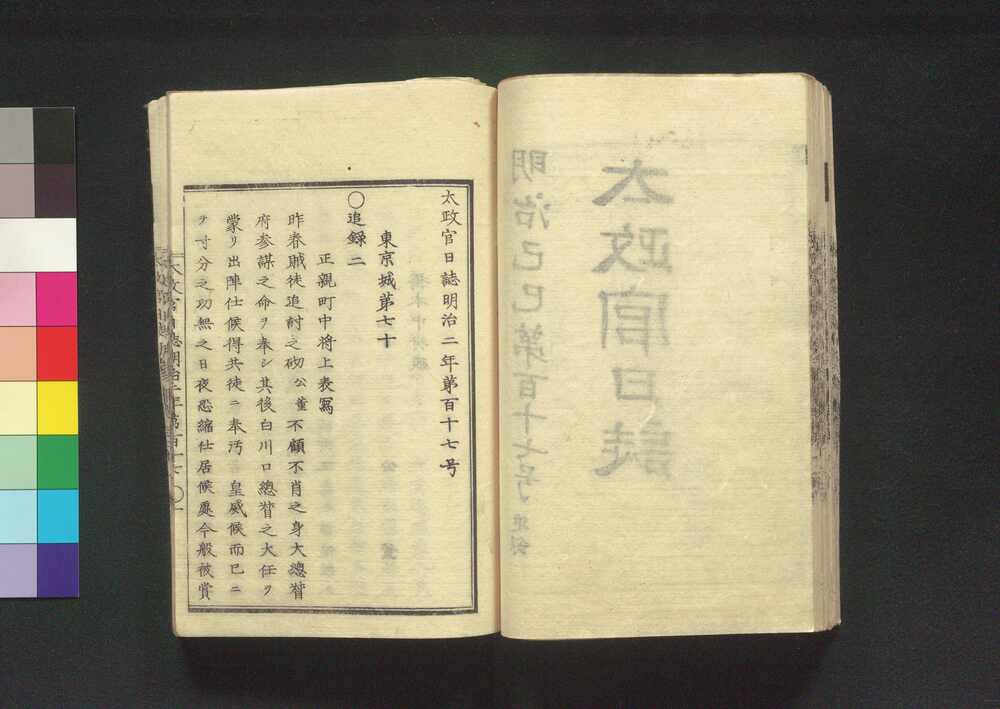 太政官日誌
明治己巳第百十七号 追録
太政官日誌明治二年第百十七号
東京城第七十
○追録二
正親町中将上表寫
昨春賊徒追討之砌公董不顧不肖之身大總督
府参謀之命ヲ奉シ其後白川口總督之大任ヲ
蒙リ出陣仕候得共徒ニ奉汚 皇威候而已ニ
テ寸分之功無之日夜恐縮仕居候處今般被賞